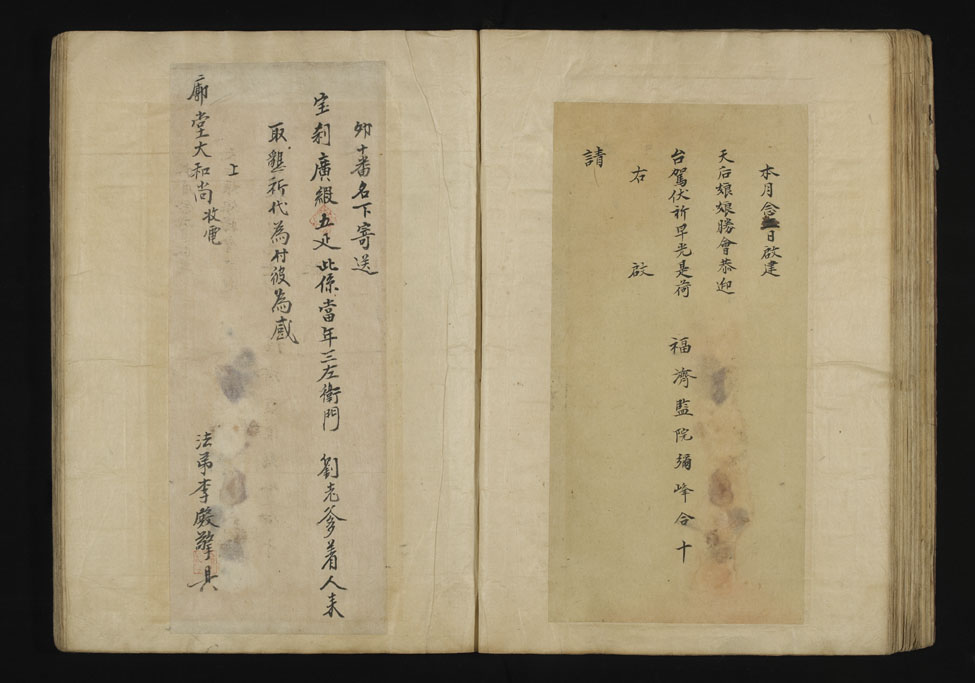 本月念日啟建
天后娘娘勝會恭迎
台駕伏祈早光是荷
右啟
請
福濟監院彌峰合十
卯十番名下寄送
宝剎廣緞五疋此係當年三左衛門 劉老爹着人来
取懇祈代為付彼為感
上
廓堂大和尚收電
法弟李殿擎具